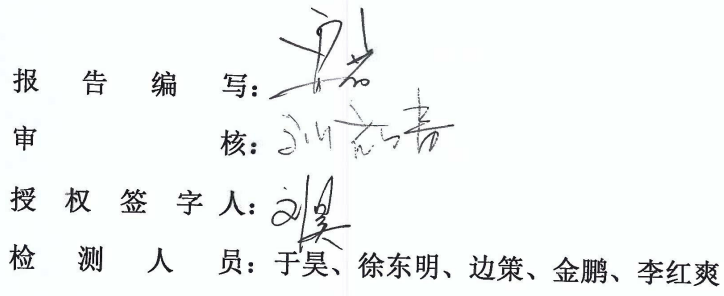 报告编写：
审核：
授权签字人：刘昊
检测人员：于昊、徐东明、边策、金鹏、李红爽